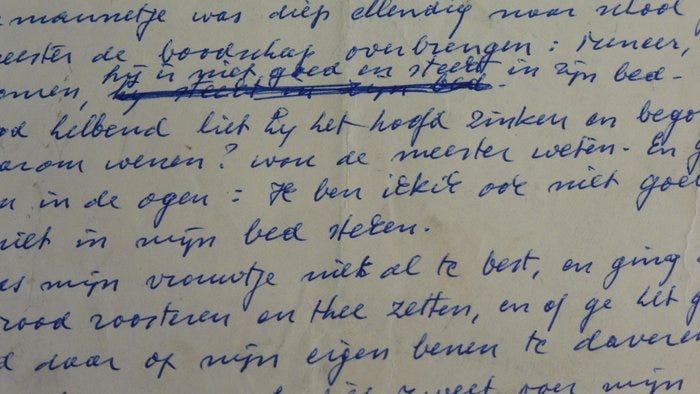 mannetje was diep ellendig naar school
meester de boodschap overbrengen : meneer,
omen, hij is niet goed en steekt in zijn bed -
hij steekt in zijn bed.
od hellend liet hij het hoofd zinken en bego
arom wenen ? wou de meester weten - En
n in de ogen = Ik ben ikik ook niet goe
niet in mijn bed steken.
es mijn vrouwtje niet al te best, en ging
rood roosteren en thee zetten, en of ge het g
d daar op mijn eigen benen te daveren
zweet over mijn